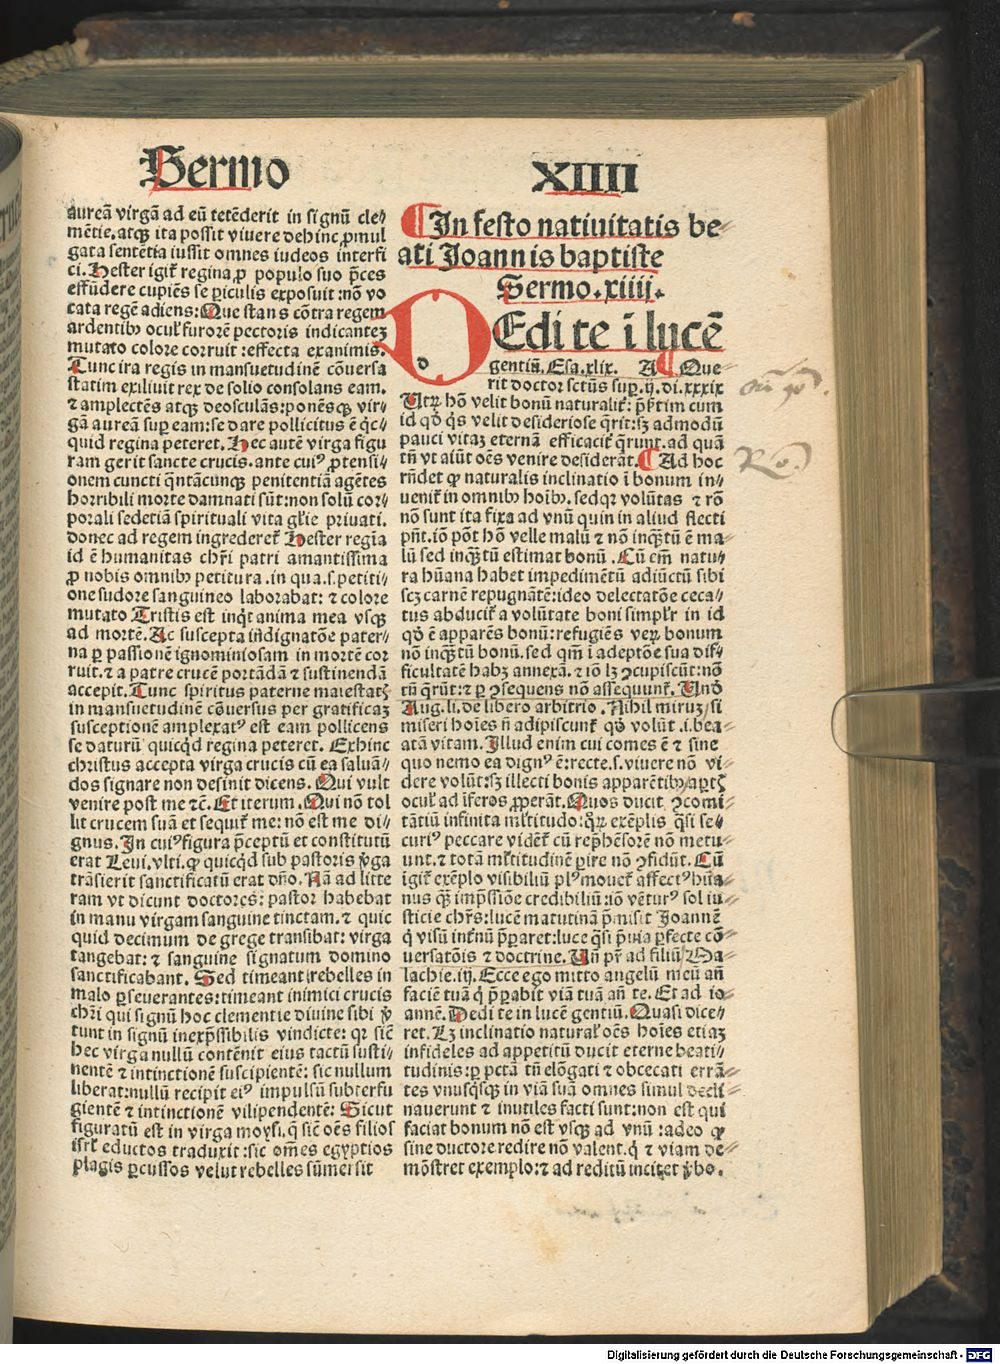 Sermo
XIIII
aureā virgā ad eū tetēderit in signū cle⸗
mētie. atqꝫ ita possit viuere dehinc ꝓmul
gata sentētia iussit omnes iudeos interfi
ci. Hester igit᷑ regina ꝓ populo suo p̄ces
effūdere cupiēs se ꝑiculis exposuit: nō vo
cata regē adiens: Que stans cōtra regem
ardentibꝰ ocuł furorē pectoris indicantez
mutato colore corruit: effecta exanimis.
Tunc ira regis in mansuetudinē cōuersa
statim exiliuit rex de solio consolans eam.
⁊ amplectēs atqꝫ deosculās: ponēsqꝫ vir⸗
gā aureā suꝑ eam: se dare pollicitus ē q̇c⸗
quid regina peteret. Hec autē virga figu
ram gerit sancte crucis. ante cuiꝰ ꝓtensi⸗
onem cuncti q̄ntācunqꝫ penitentiā agētes
horribili morte damnati sūt: non solū cor⸗
porali sed etiā spirituali vita gl̄ie priuati.
donec ad regem ingrederet᷑ Hester regīa
id ē humanitas chr̄i patri amantissima
ꝓ nobis omnibꝰ petitura. in qua. s. petiti⸗
one sudore sanguineo laborabat: ⁊ colore
mutato Tristis est inq̇t anima mea vsqꝫ
ad mortē. Ac suscepta īdignatōe pater⸗
na ꝑ passionē ignominiosam in mortē cor
ruit. ⁊ a patre crucē portādā ⁊ sustinendā
accepit. Tunc spiritus paterne maiestatꝭ
in mansuetudinē cōuersus per gratificaꝫ
susceptionē amplexatꝰ est eam pollicens
se daturū quicq̇d regina peteret. Exhinc
christus accepta virga crucis cū ea saluā⸗
dos signare non desinit dicens. Qui vult
venire post me ⁊c̄. Et iterum. Qui nō tol
lit crucem suā et sequit᷑ me: nō est me di⸗
gnus. In cuiꝰ figura p̄ceptū et constitutū
erat Leui. vlti. ꝙ quicq̇d sub pastoris v̄ga
trāsierit sanctificatū erat dn̄o. Nā ad litte
ram vt dicunt doctores: pastor habebat
in manu virgam sanguine tinctam. ⁊ quic
quid decimum de grege transibat: virga
tangebat: ⁊ sanguine signatum domino
sanctificabant. Sed timeant rebelles in
malo ꝑseuerantes: timeant inimici crucis
chr̄i qui signū hoc clementie diuine sibi v̄
tunt in signū inexp̄ssibilis vindicte: qꝛ sic̄
hec virga nullū contēnit eius tactū susti⸗
nentē ⁊ intinctionē suscipientē: sic nullum
liberat: nullū recipit eiꝰ impulsū subterfu
gientē ⁊ intinctionē vilipendentē: Sicut
figuratū est in virga moysi. q̄ sic̄ oēs filios
isrł eductos traduxit: sic om̄es egyptios
plagis ꝑcussos velut rebelles sūmersit
¶ In festo natiuitatis be⸗
ati Joannis baptiste
Sermo. xiiij.
DEdi te ī lucē
gentiū. Esa. xlix. A ¶ Que
rit doctor sctūs suꝑ. ij. di. xxxix
Utꝝ hō velit bonū naturalit᷑: p̄t̄im cum
id qd̄ q̇s velit desideriose q̄rit: sꝫ admodū
pauci vitaꝫ eternā efficacit᷑ q̄runt. ad quā
tn̄ vt aiūt oēs venire desiderāt. ¶ Ad hoc
rn̄det ꝙ naturalis inclinatio ī bonum in⸗
uenit᷑ in omnibꝰ hoībꝰ. sed qꝛ volūtas ⁊ rō
nō sunt ita fixa ad vnū quin in aliud flecti
pn̄t. iō pōt hō velle malū ⁊ nō inqꝫtū ē ma
lū sed inqꝫtū estimat bonū. Cū em̄ natu⸗
ra hūana habet impedimētū adiūctū sibi
scꝫ carnē repugnātē: ideo delectatōe ceca⸗
tus abducit᷑ a volūtate boni simplr̄ in id
qd̄ ē apparēs bonū: refugiēs veꝝ bonum
nō inqꝫtū bonū. sed qm̄ ī adeptōe sua dif⸗
ficultatē habꝫ annexā. ⁊ iō lꝫ ꝯcupiscūt: nō
tn̄ q̄rūt: ⁊ ꝑ ꝯsequens nō assequunt᷑. Unde
Aug. li. de libero arbitrio. Nihil miruꝫ / si
miseri hoīes n̄ adipiscunt᷑ qd̄ volūt. i. bea⸗
atā vitam. Illud enim cui comes ē ⁊ sine
quo nemo ea dignꝰ ē: recte. s. viuere nō vi⸗
dere volūt: sꝫ illecti bonis apparētibꝰ / aꝑtꝭ
ocuł ad īferos ꝓperāt. Quos ducit ꝯcomi⸗
tātiū infinita ml̄titudo: qꝝ exēplis q̄si se⸗
curiꝰ peccare vidēt᷑ cū rep̄hēsorē nō metu⸗
unt. ⁊ totā ml̄titudinē ꝑire nō ꝯfidūt. Cū
igit᷑ exēplo visibiliū plꝰ mouet᷑ affectꝰ hūa⸗
nus qꝫ imp̄ssiōe credibiliū: iō vēturꝰ sol iu⸗
sticie chr̄s: lucē matutinā p̄misit Joannē
q̇ visū int̄nū p̄ꝑaret: luce q̄si p̄uia ꝑfecte cō⸗
uersatōis ⁊ doctrine. Un̄ pr̄ ad filiū / Ma⸗
lachie. iij. Ecce ego mitto angelū meū an̄
faciē tuā q̇ p̄ꝑabit viā tuā an̄ te. Et ad io⸗
annē. Dedi te in lucē gentiū. Quasi dice⸗
ret. Lꝫ inclinatio naturał oēs hoīes etiaꝫ
infideles ad appetitū ducit eterne beati⸗
tudinis: ꝑ pctā tn̄ elōgati ⁊ obcecati errā⸗
tes vnusq̇sqꝫ in viā suā omnes simul decli⸗
nauerunt ⁊ inutiles facti sunt: non est qui
faciat bonum nō est vsqꝫ ad vnū: adeo ꝙ
sine ductore redire nō valent. q̇ ⁊ viam de⸗
mōstret exemplo: ⁊ ad reditū incitet v̄bo.
Digitalisierung gefördert durch die Deutsche Forschungsgemeinschaft - DFG